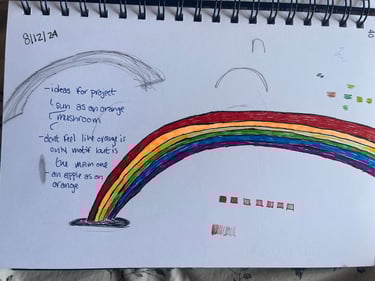 8/12/24
40
- ideas for project
sun as an orange
mushroom
- dont feel like orange is
only motif but is
the main one
- an apple as an
orange